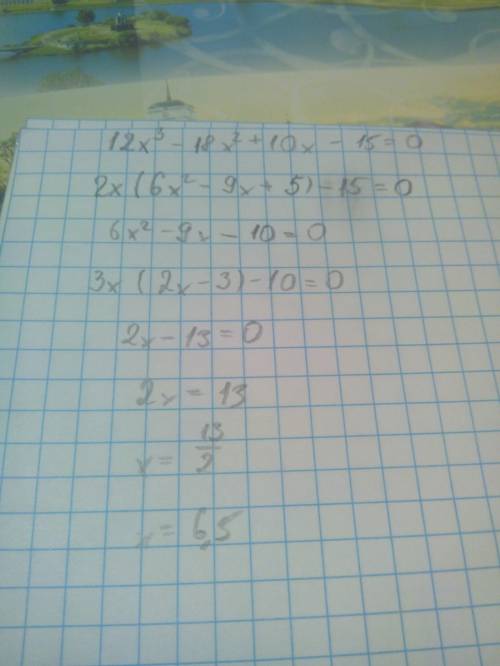 12x³ - 18x² + 10x - 15 = 0
2x (6x² - 9x + 5) - 15 = 0
6x² - 9x - 10 = 0
3x (2x - 3) - 10 = 0
2x - 13 = 0
2x = 13
x = 13/2
x = 6,5